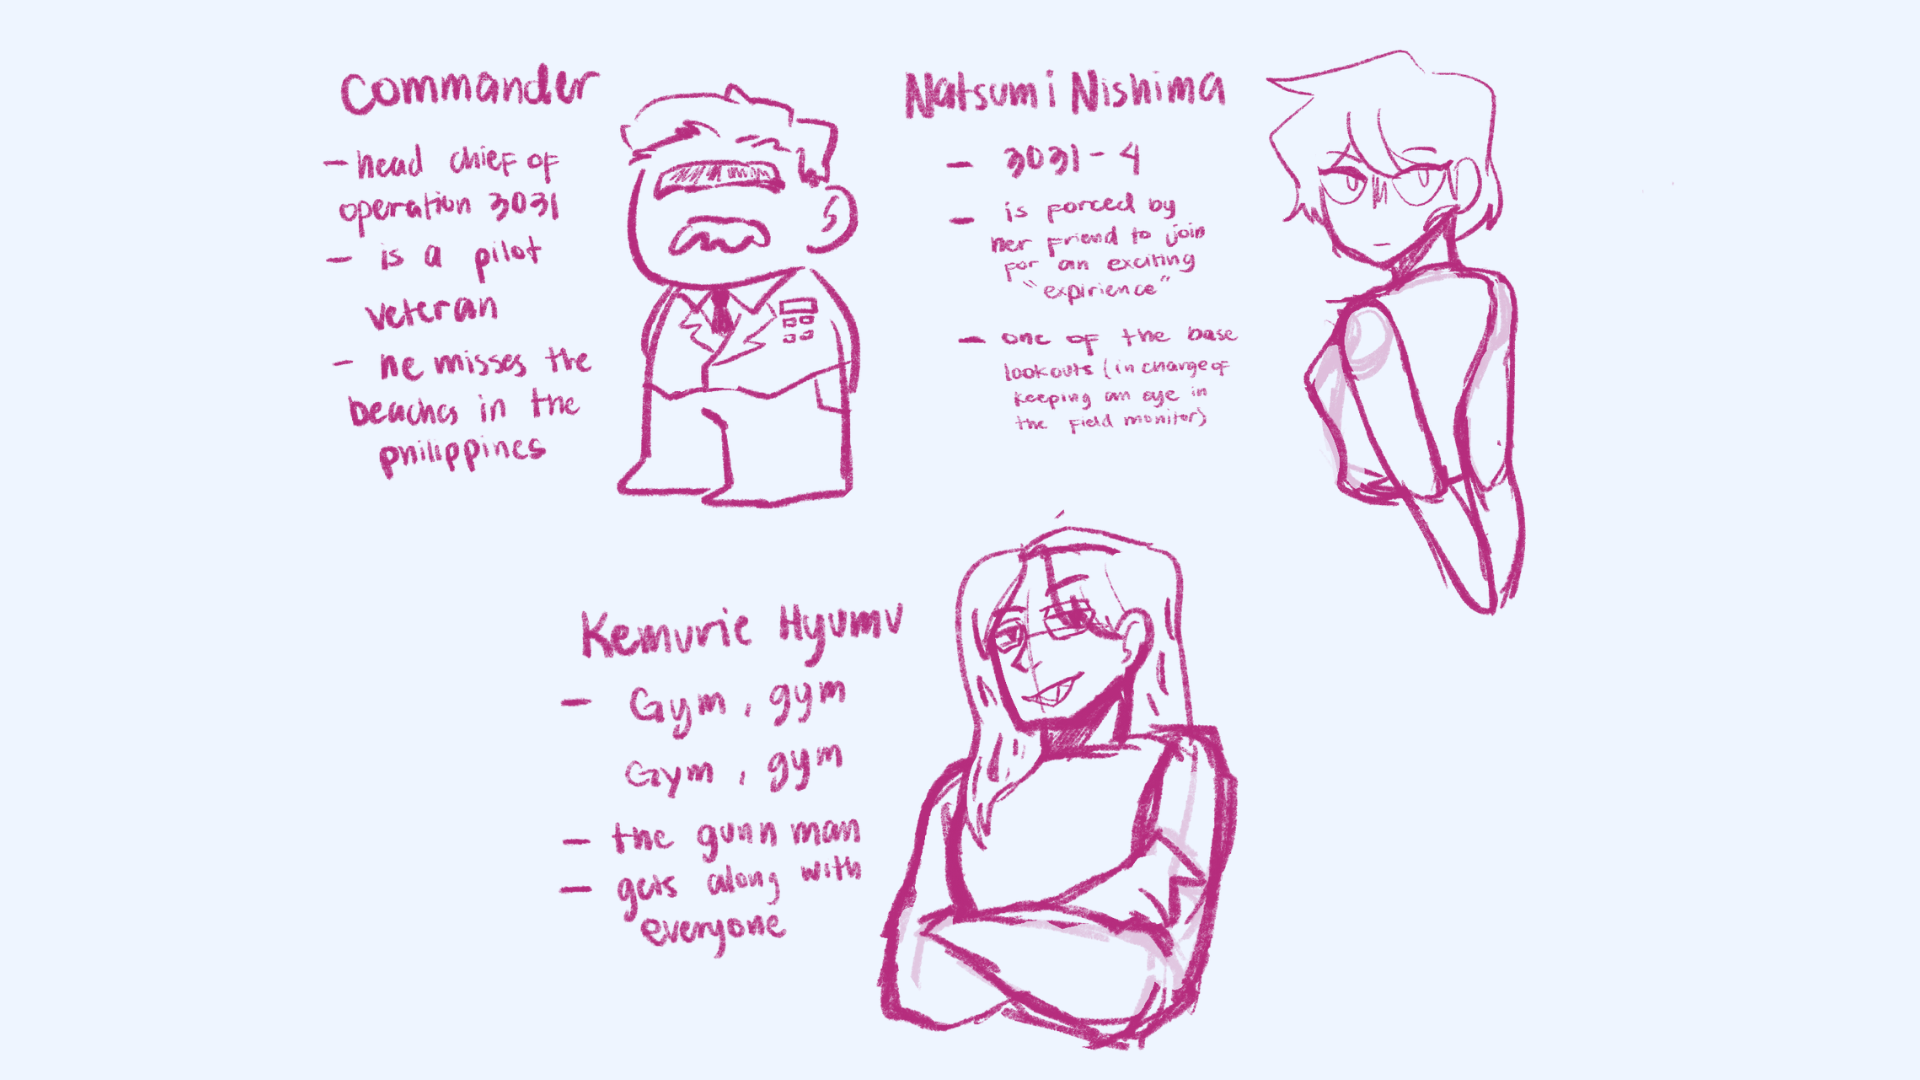 Commander
- head chief of
operation 3031
- is a pilot
veteran
- he misses the
beaches in the
philippines
Natsumi Nishima
- 3031-4
- is forced by
her friend to join
for an exciting
"expirience"
- one of the base
lookouts (in charge of
keeping an eye in
the field monitor)
Kemurie Hyumu
- Gym, gym
Gym, gym
- the gunn man
- gets along with
everyone